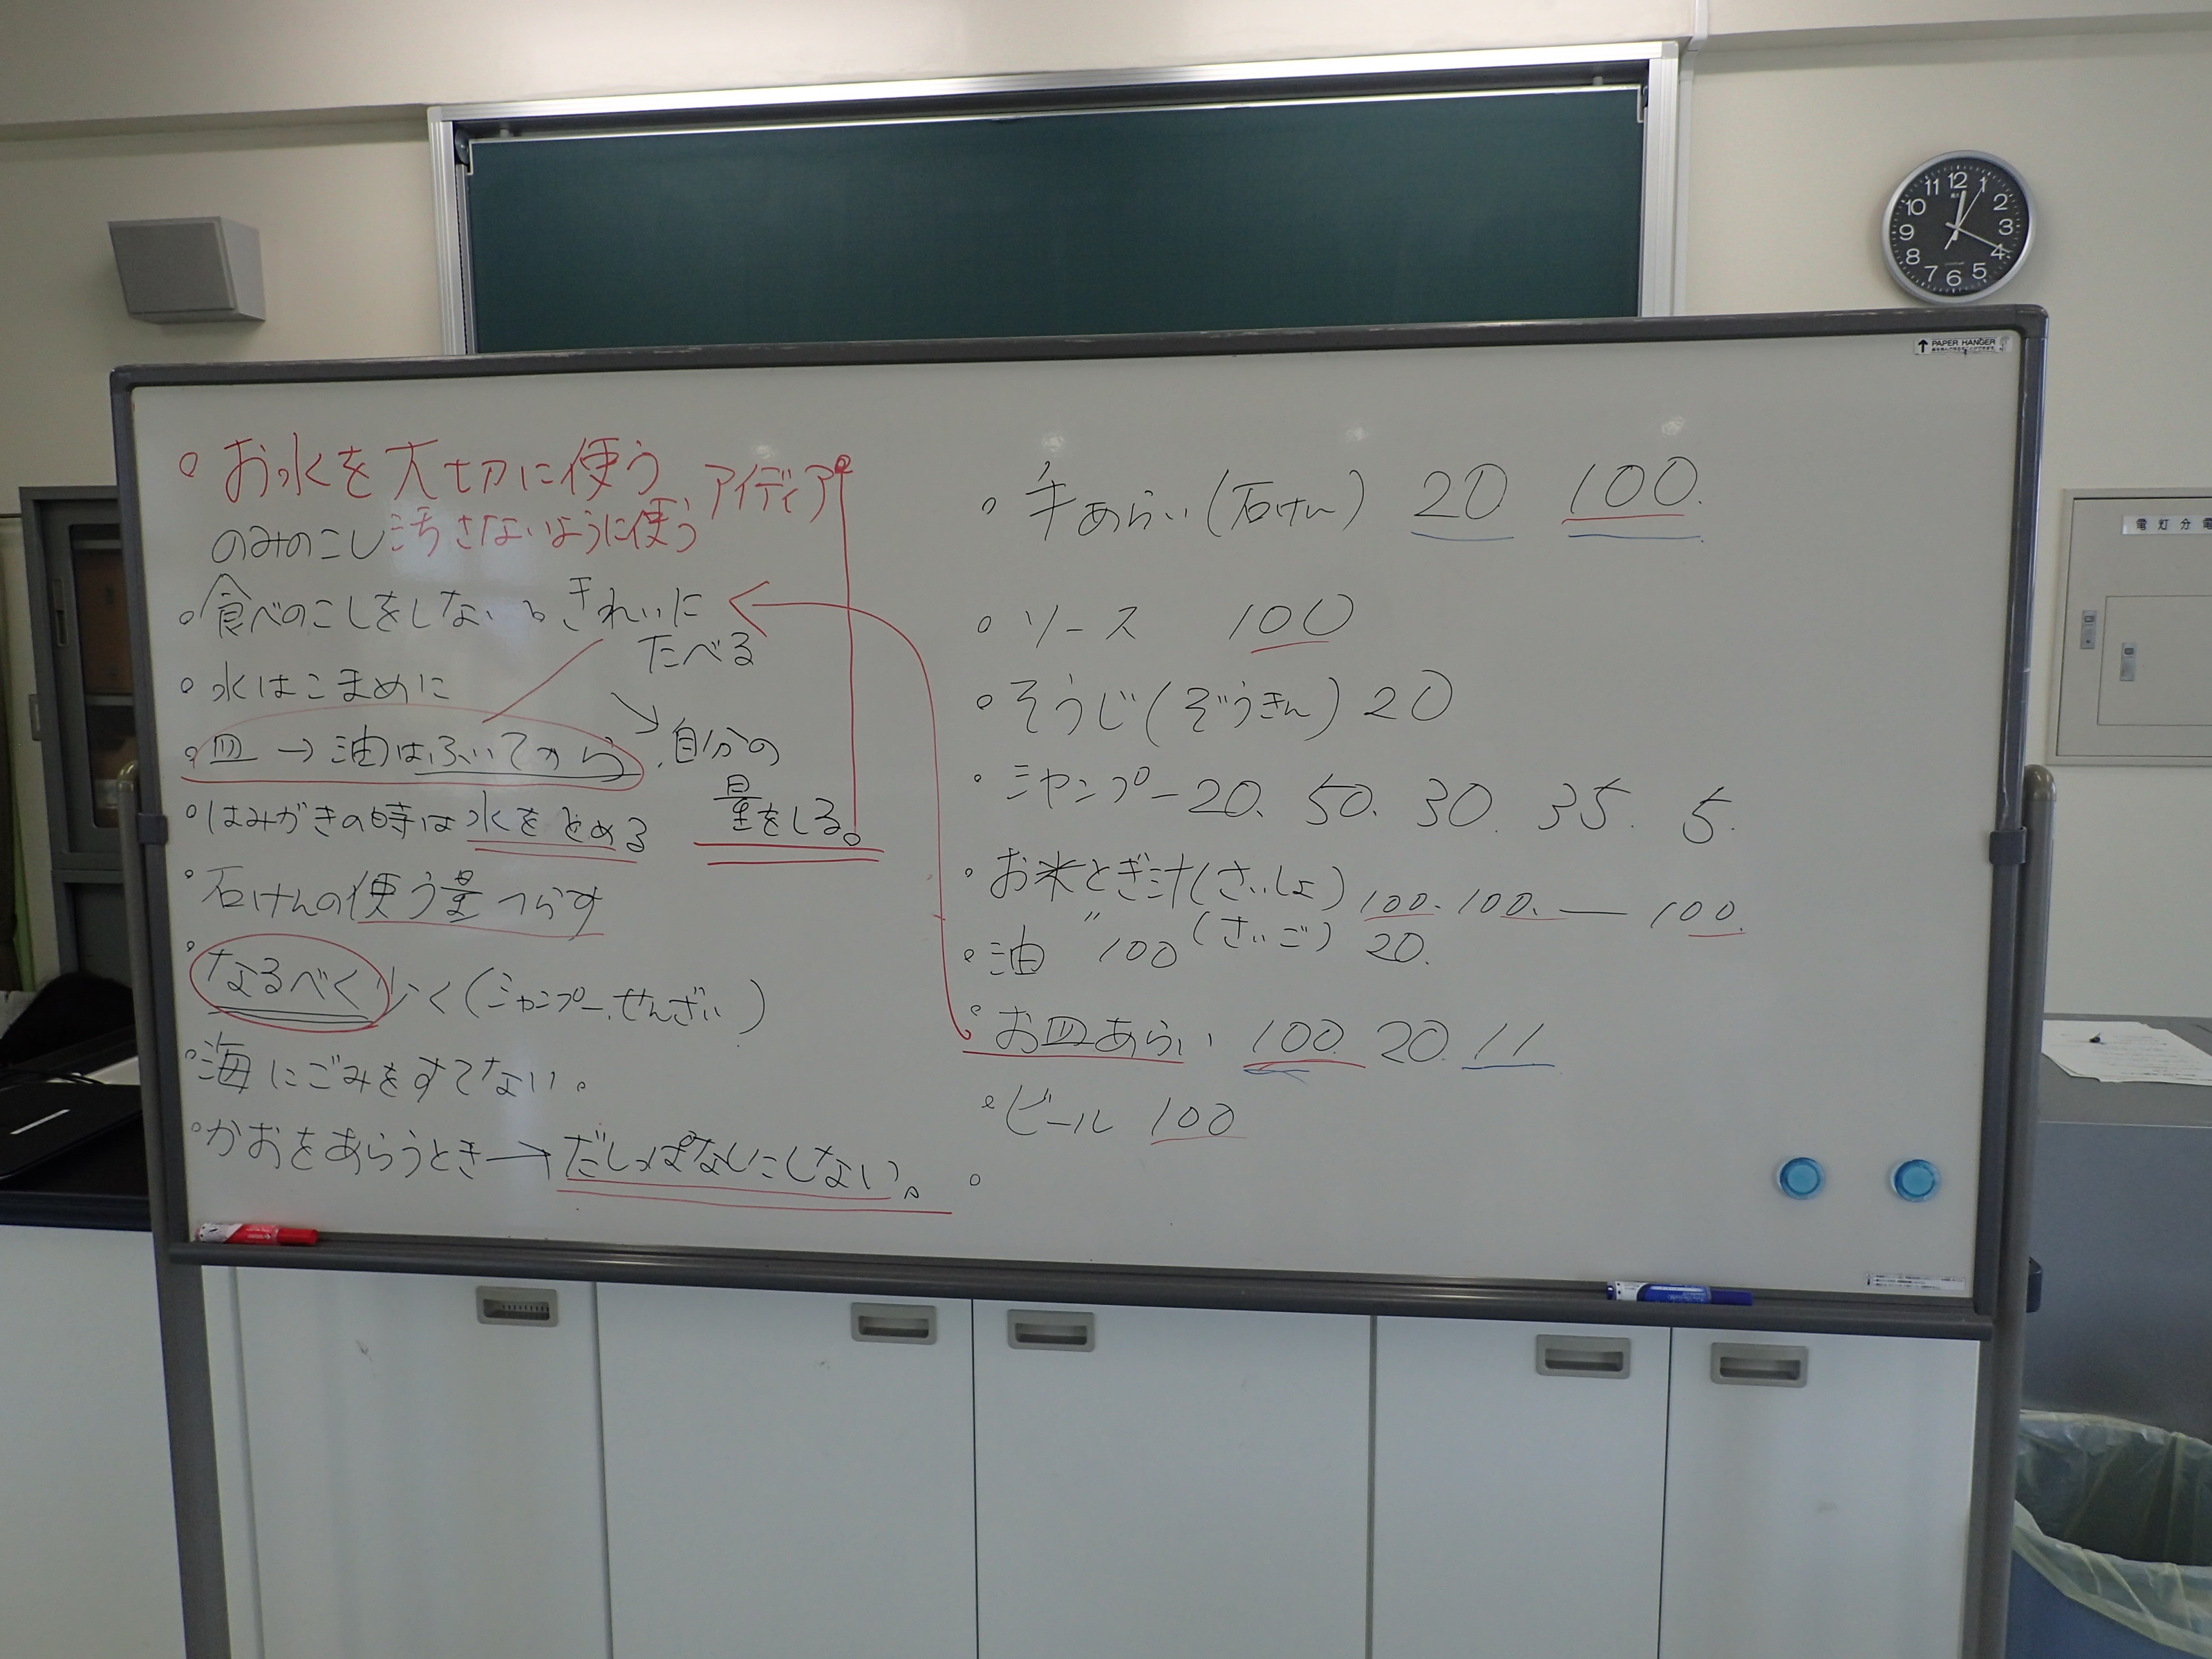 お水を大切に使う
汚さないように使う アイディア
のみのこし
食べのこしをしない。きれいに
たべる
水はこまめに
皿→油はふいてから
自分の
量をしる。
はみがきの時は水をとめる
石けんの使う量へらす
なるべく少く(シャンプー、せんざい)
海にごみをすてない。
かおをあらうとき→だしっぱなしにしない。
手あらい(石けん) 20 100.
ソース 100
そうじ(ぞうきん) 20
シャンプー20. 50. 30. 35. 5.
お米とぎ汁(さいしょ) 100. 100. — 100.
〃 (さいご) 20.
油 100
お皿あらい 100. 20. 11
ビール 100
PAPER HANGER
11 12 1
10 2
9 3
8 4
7 6 5
電灯分電